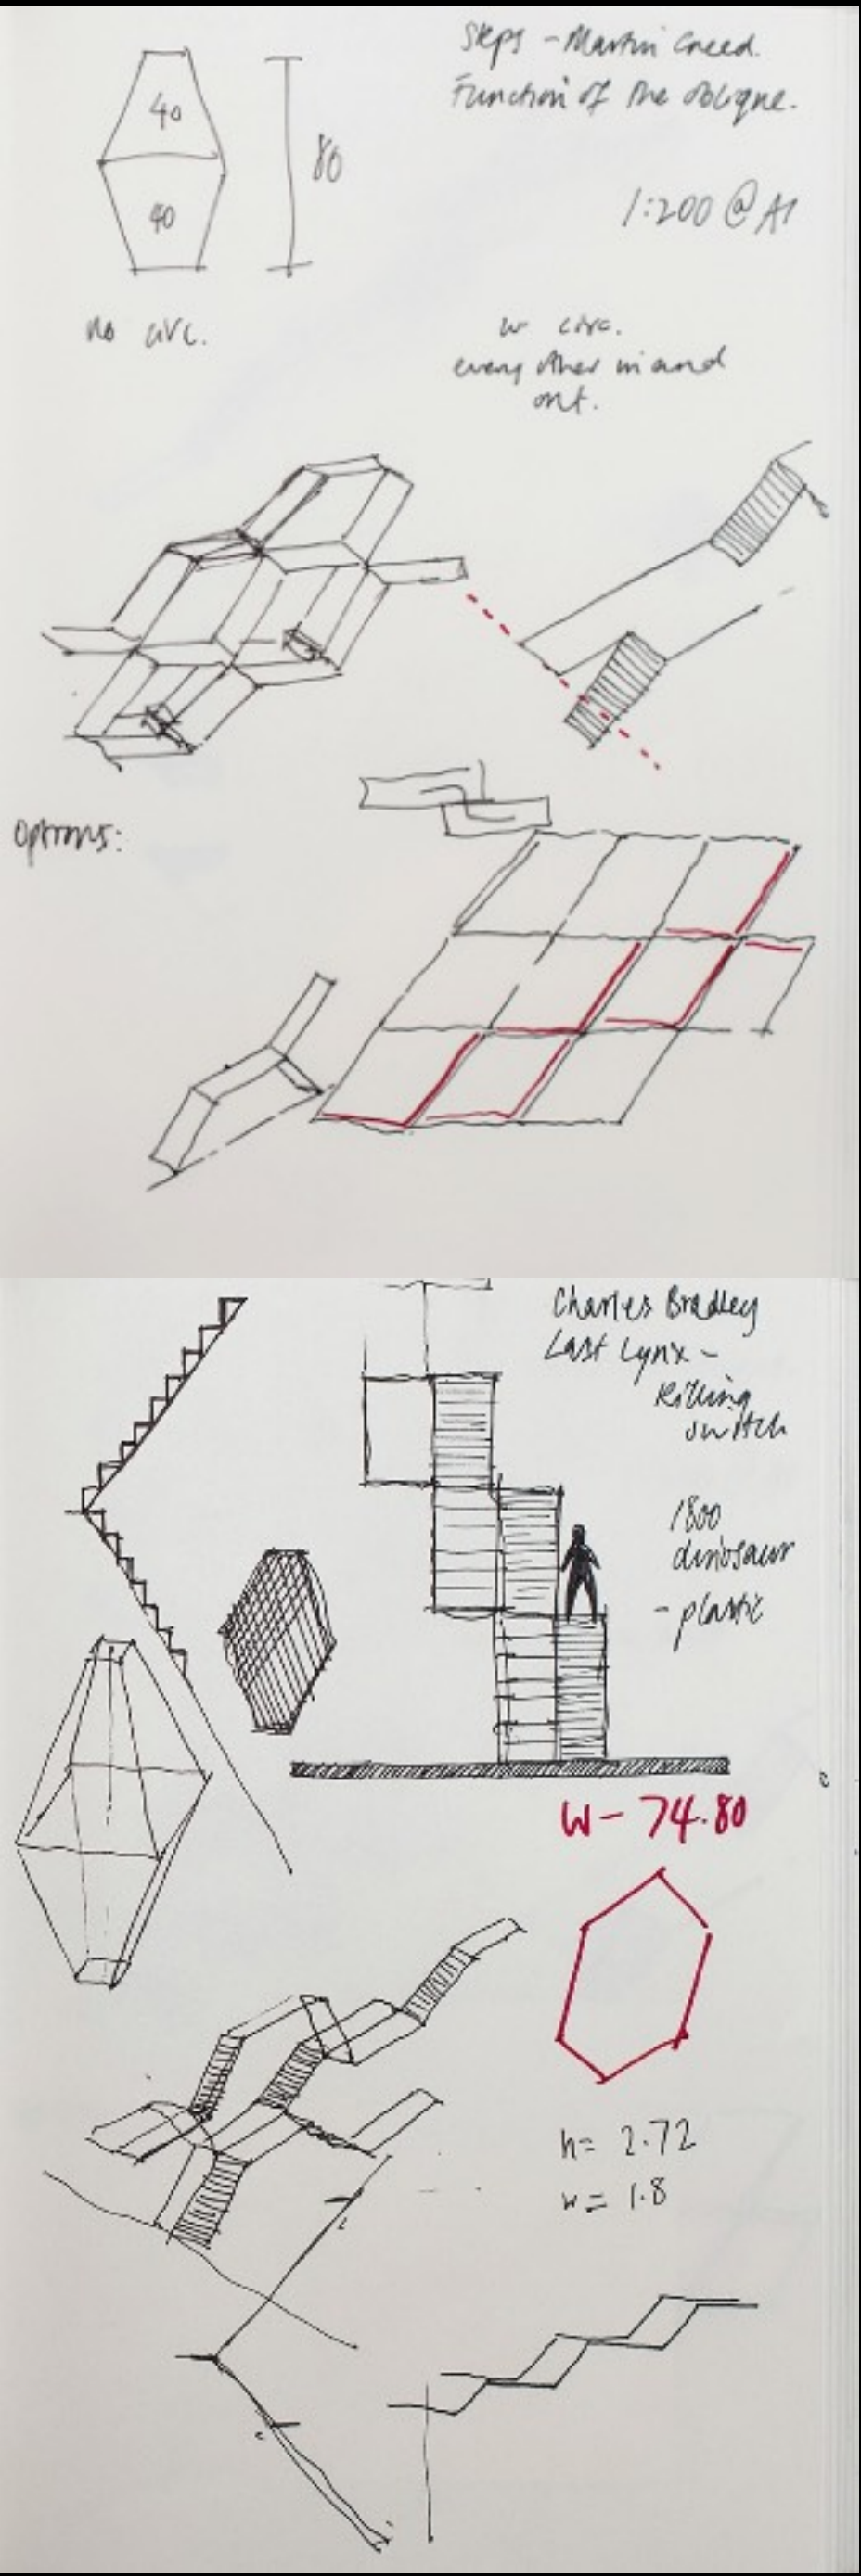 Steps - Martin Creed.
Function of the oblique.
40
80
40
1:200 @ A1
no circ.
w circ.
every other in and
out.
Options:
Charles Bradley
Last Lynx -
Killing
switch
1800
dinosaur
- plastic
W - 74.80
h = 2.72
w = 1.8